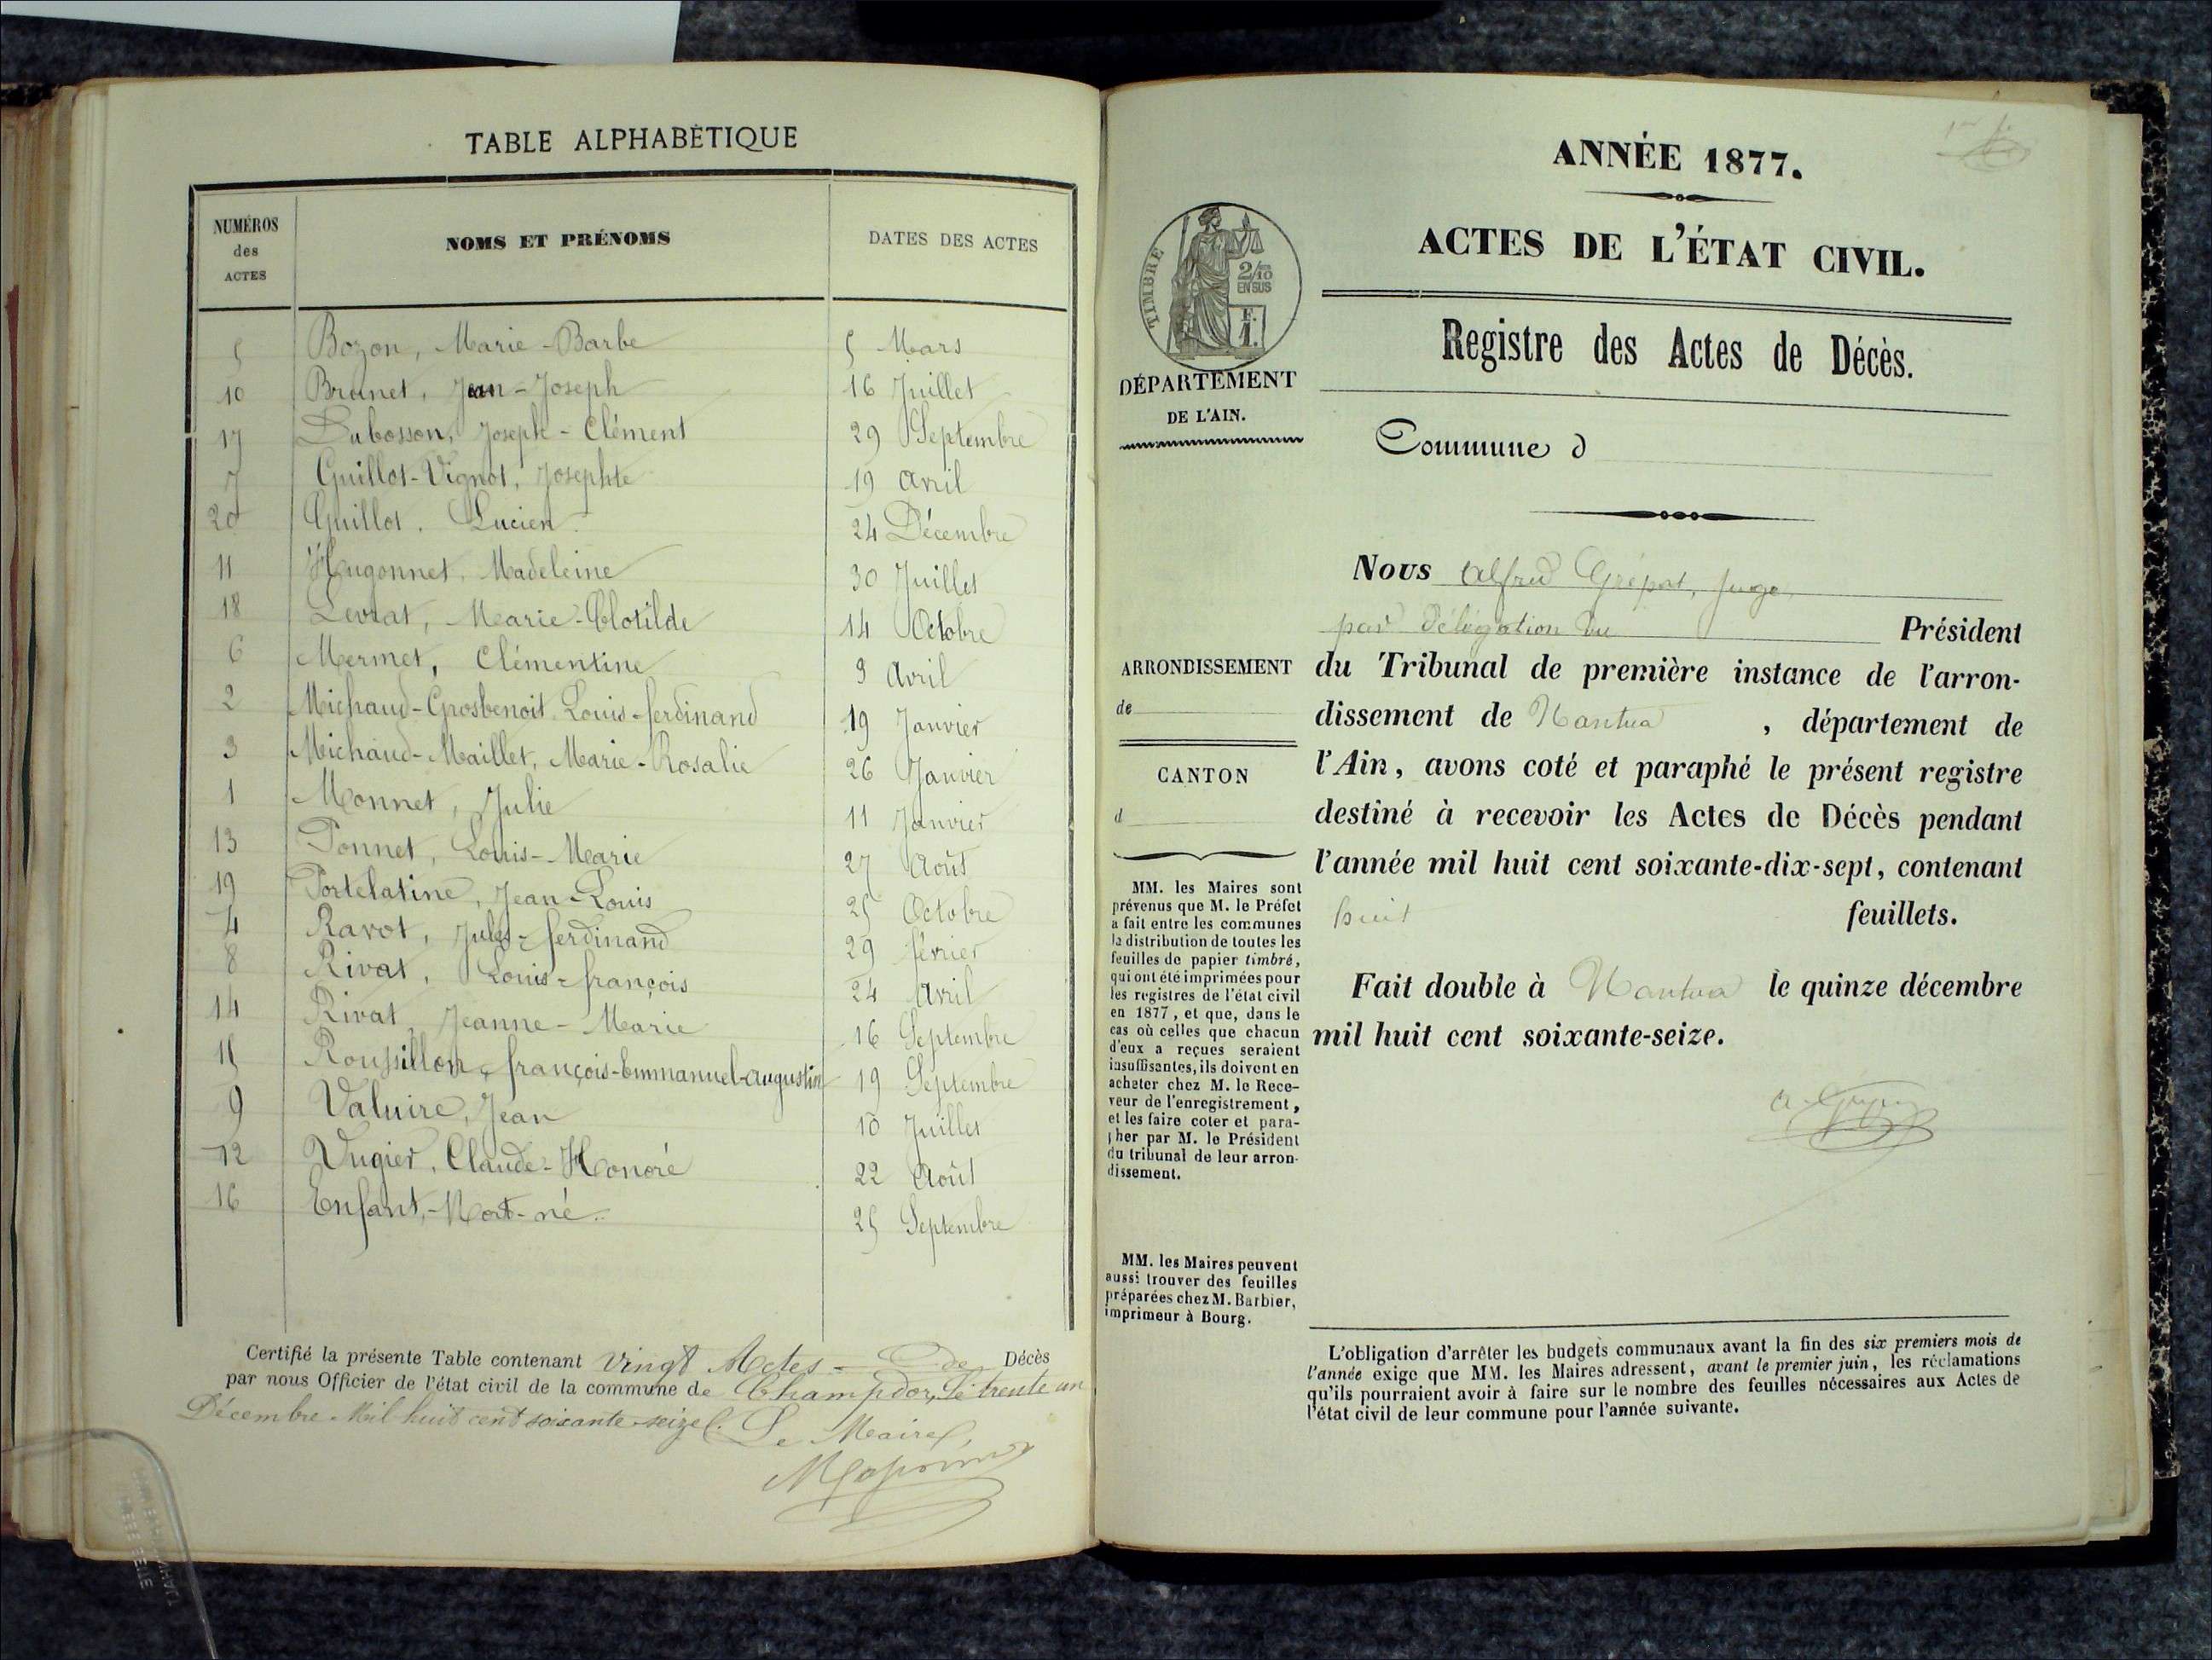 TABLE ALPHABÉTIQUE
NUMÉROS des ACTES NOMS ET PRÉNOMS DATES DES ACTES
5 Bozon, Marie-Barbe 5 Mars
10 Brunet, Jean-Joseph 16 Juillet
17 Dubosson, Joseph-Clément 29 Septembre
7 Guillot-Vignot, Josephte 19 avril
20 Guillot, Lucien 24 Décembre
11 Hugonnet, Madeleine 30 Juillet
18 Levrat, Marie-Clotilde 14 Octobre
6 Mermet, Clémentine 9 avril
2 Michaud-Grosbenoit Louis-ferdinand 19 Janvier
3 Michaud-Maillet, Marie-Rosalie 26 Janvier
1 Monnet, Julie 11 Janvier
13 Ponnet, Louis-Marie 27 Août
19 Portelatine, Jean-Louis 25 Octobre
4 Ravot, Jules-ferdinand 29 février
8 Rivat, Louis-françois 24 avril
14 Rivat Jeanne-Marie 16 Septembre
15 Roussillon, françois-Emmanuel-augustin 19 Septembre
9 Valuire, Jean 10 Juillet
12 Vugier, Claude-Honoré 22 Août
16 Enfant,-Mort-né. 25 Septembre
Certifié la présente Table contenant Vingt Actes de Décès
par nous Officier de l'état civil de la commune de Champdor, le trente un
Décembre Mil huit cent soixante-seize. Le Maire,
ANNÉE 1877.
ACTES DE L'ÉTAT CIVIL.
Registre des Actes de Décès.
TIMBRE
2/10
EN SUS
F.
1.
DÉPARTEMENT
DE L'AIN.
Commune d
Nous Alfred Grépat, Juge,
par délégation du Président
du Tribunal de première instance de l'arron-
dissement de Nantua, département de
l'Ain, avons coté et paraphé le présent registre
destiné à recevoir les Actes de Décès pendant
l'année mil huit cent soixante-dix-sept, contenant
huit feuillets.
Fait double à Nantua le quinze décembre
mil huit cent soixante-seize.
ARRONDISSEMENT
de
CANTON
d
MM. les Maires sont
prévenus que M. le Préfet
a fait entre les communes
la distribution de toutes les
feuilles de papier timbré,
qui ont été imprimées pour
les registres de l'état civil
en 1877, et que, dans le
cas où celles que chacun
d'eux a reçues seraient
insuffisantes, ils doivent en
acheter chez M. le Rece-
veur de l'enregistrement,
et les faire coter et para-
pher par M. le Président
du tribunal de leur arron-
dissement.
MM. les Maires peuvent
aussi trouver des feuilles
préparées chez M. Barbier,
imprimeur à Bourg.
L'obligation d'arrêter les budgets communaux avant la fin des six premiers mois de
l'année exige que MM. les Maires adressent, avant le premier juin, les réclamations
qu'ils pourraient avoir à faire sur le nombre des feuilles nécessaires aux Actes de
l'état civil de leur commune pour l'année suivante.